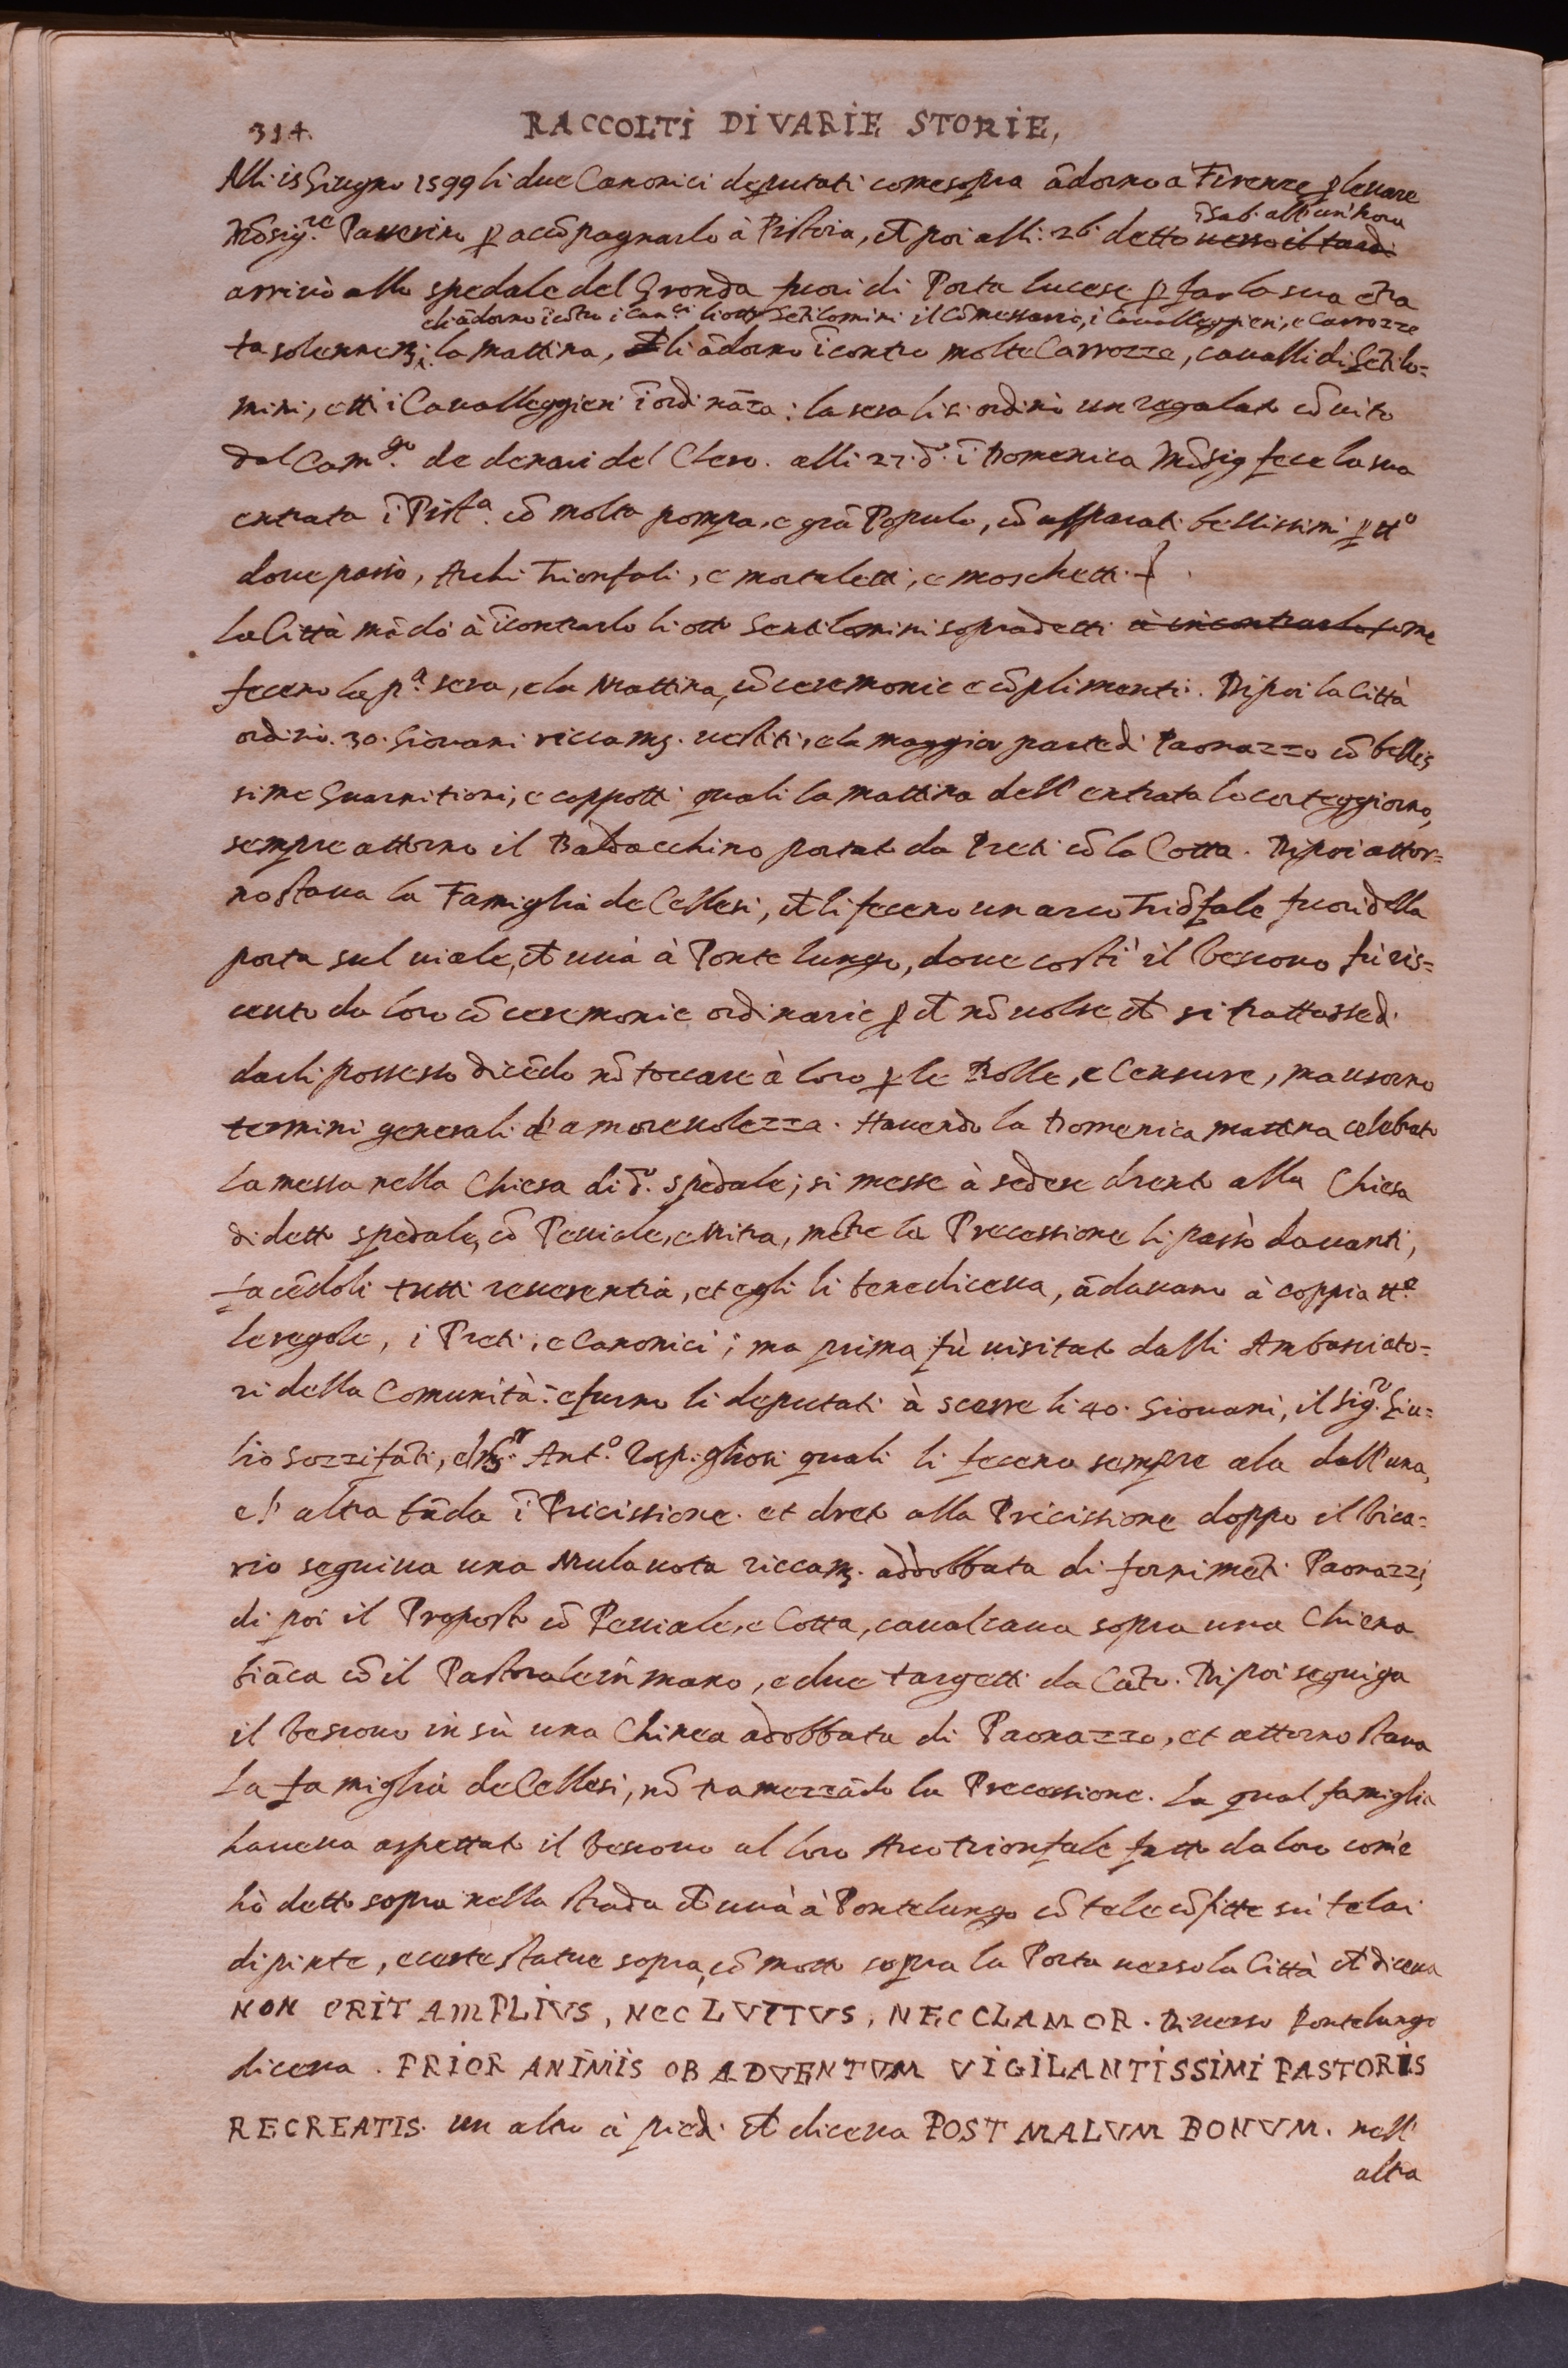 314.
RACCOLTI DI VARIE STORIE,
Alli 15 Giugno 1599 li due Canonici deputati come sopra ādorno a Firenze ꝑ levare
Mōsig.re Passerino ꝑ accōpagnarlo à Pistoia, et poi alli: 26. detto verso il tardi
ī Sab. all' un'hora
arrivò allo spedale del Gronda fuori di Porta lucese ꝑ far la sua ētra
eli ādorno īcōtro i Can.ci li otto Gētilomini il Cōmessario, i Cavalleggieri, e Carrozze
ta solennem. la mattina, et li ādorno īcontro molte Carrozze, cavalli di Gētilo=
mini, et i Cavalleggieri ī ordināza: la sera li si ordinò un regalato cōvito
dal Cam.go de denari del Clero. alli 27. d.o ī Domenica Mōsig fece la sua
entrata ī Pist.a cō molta pompa, e grā Populo, cō apparati bellissimi ꝑ tt.o
dove passò, Archi Trionfali, e mortaletti, e moschetti.
La Città mādò à īcontrarlo li otto Gentilomini sopradetti à incontrarlo come
feceno la p.a sera, e la Mattina, cō ceremonie e cōplimenti. Di poi la Città
ordinò. 30. Giovani riccam. vestiti, e la maggior parte di Paonazzo cō bellis
sime Guarnitioni, e cappotti quali la mattina dell' entrata lo corteggiorno,
sempre attorno il Baldacchino portato da Preti cō la Cotta. Di poi attor=
no stava la Famiglia de Cellesi, et li feceno un arco Triōfale fuori della
porta sul viale, et và à Ponte lungo, dove costì il Vescovo fù ris=
cevuto da loro cō ceremonie ordinarie ꝑ ct nō volse ct si trattasse di
darli possesso dicēdo nō toccare à loro ꝑ le Bolle, e Censure, ma usorno
termini generali d'amorevolezza. Havendo la Domenica mattina celebrato
la messa nella Chiesa di d.o spedale; si messe à sedere drento alla Chiesa
di detto spedale, cō Peviale, e Mitra, mētre la Precessione li passò davanti,
facēdoli tutti reverentia, et egli li benediceva, ādavano à coppia tt.e
le regole, i Preti, e Canonici; ma prima fù visitato dalli Ambasciato=
ri della Comunità: e furno li deputati à scerre li 40. Giovani, il Sig.r Giu=
lio Sozzifāti, e Ant.o Rospigliosi quali li feceno sempre ala dall' una,
e l' altra bāda ī Pricissione. et dreto alla Pricissione doppo il Vica=
rio seguiva una Mula vota riccam. addobbata di fornimēti Paonazzi,
di poi il Proposto cō Peviale, e Cotta, cavalcava sopra una Chinea
biāca cō il Pastorale in mano, e due targetti da Cāto. Di poi seguiva
il Vescovo in sù una Chinea adobbata di Paonazzo, et attorno stava
La famiglia de Cellesi, nō tramezzādo la Precessione. La qual famiglia
haveva aspettato il Vescovo al loro Arco trionfale fatto da loro com'e
hò detto sopra nella strada ct và à Pontelungo cō tele cōfitte sù telai
dipinte, e certe statue sopra, cō motto sopra la Porta verso la Città ct diceva
NON ERIT AMPLIVS, NEC LVTTVS, NEC CLAMOR. Di verso Pontelungo
diceva. PRIOR ANIMIS OB ADVENTVM VIGILANTISSIMI PASTORIS
RECREATIS. un altro à piedi ct diceva POST MALVM BONVM. nell'
altra